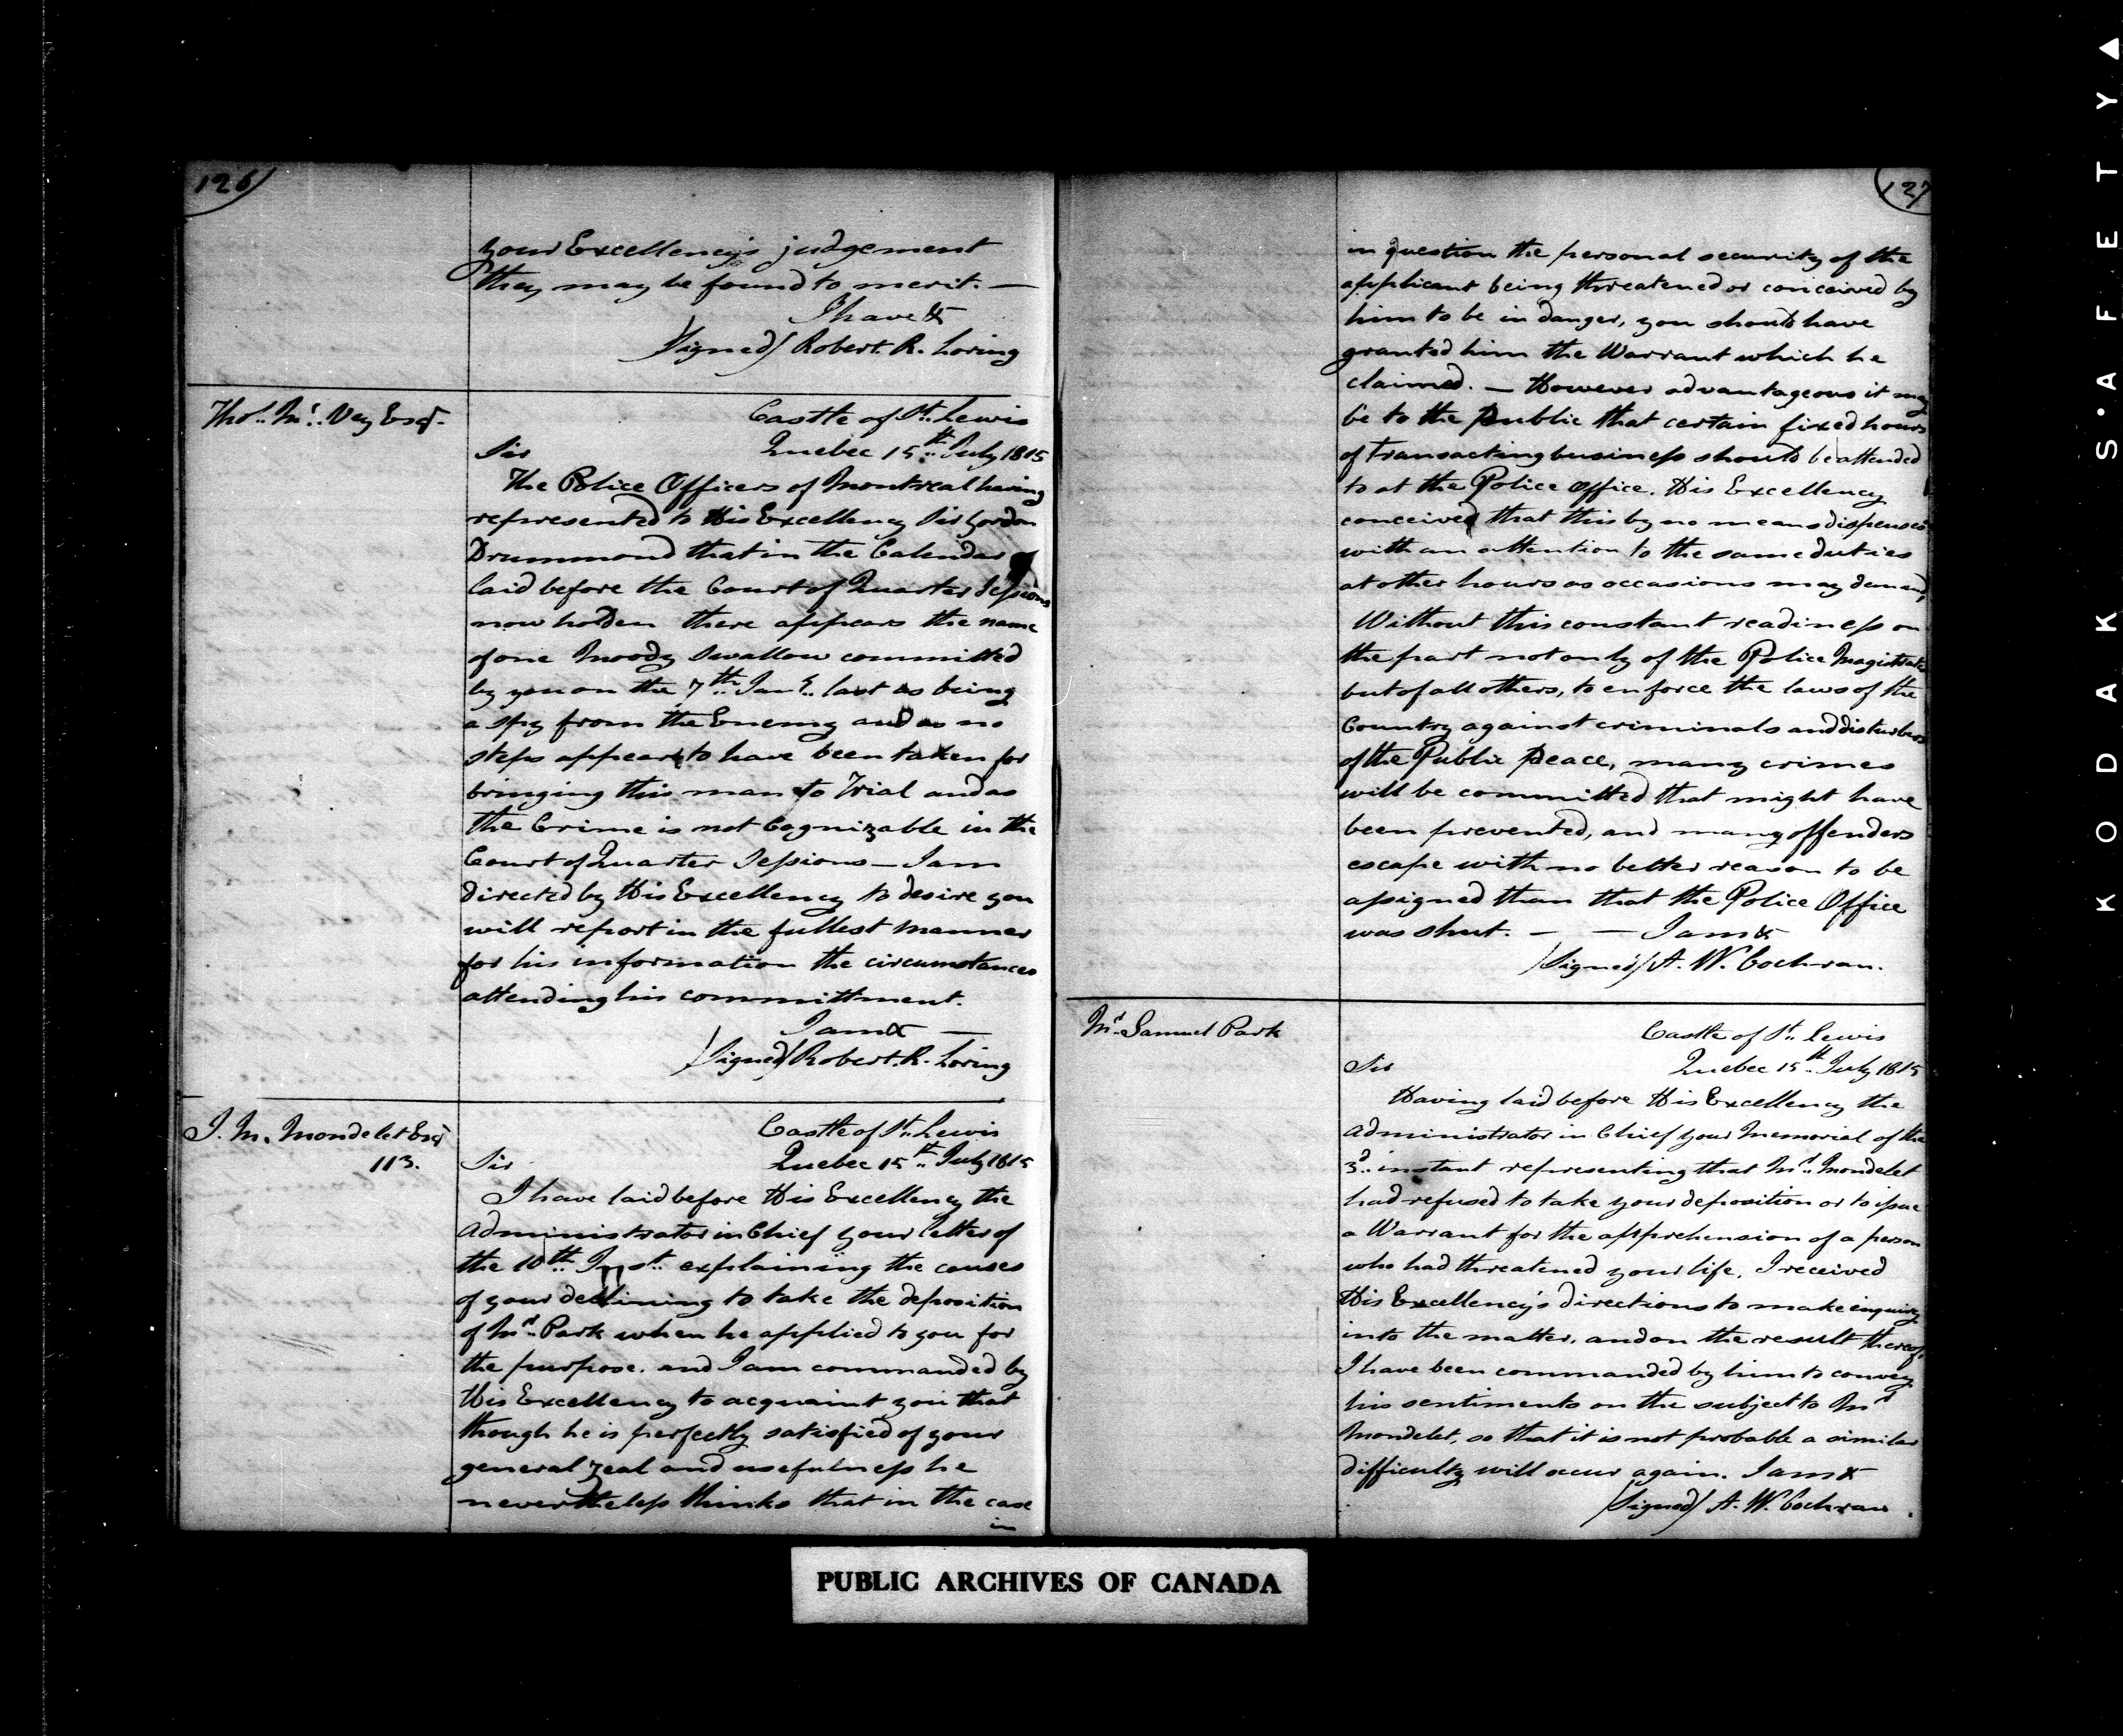 126
your Excellency's judgement
they may be found to merit. —
I have &
(Signed) Robert. R. Loring
Thos. Mc. Vey Esqr.
Castle of St. Lewis
Quebec 15th July 1815
Sir
The Police Officers of Montreal having
represented to His Excellency Sir Gordon
Drummond that in the Calendar
laid before the Court of Quarter Sessions
now holden there appears the name
of one Moody Swallow committed
by you on the 7th Jany. last as being
a spy from the Enemy and as no
steps appear to have been taken for
bringing this man to Trial and as
the Crime is not Cognizable in the
Court of Quarter Sessions — I am
directed by His Excellency to desire you
will report in the fullest manner
for his information the circumstances
attending his committment.
I am & —
(Signed) Robert. R. Loring
J. M. Mondelet Esqr
113.
Castle of St. Lewis
Quebec 15th July 1815
Sir
I have laid before His Excellency the
Administrator in Chief your letter of
the 10th Inst. explaining the causes
of your declining to take the deposition
of Mr. Park when he applied to you for
the purpose. and I am commanded by
His Excellency to acquaint you that
though he is perfectly satisfied of your
general zeal and usefulness he
nevertheless thinks that in the case
in
127
in question the personal security of the
applicant being threatened or conceived by
him to be in danger, you should have
granted him the Warrant which he
claimed. — However advantageous it may
be to the public that certain fixed hours
of transacting business should be attended
to at the Police Office. His Excellency
conceives that this by no means dispenses
with an attention to the same duties
at other hours as occasions may demand,
Without this constant readiness on
the part not only of the Police Magistrate
but of all others, to enforce the laws of the
Country against criminals and disturbers
of the Public Peace, many crimes
will be committed that might have
been prevented, and many offenders
escape with no better reason to be
assigned than that the Police Office
was shut. — — I am &
(Signed) A. W. Cochran.
Mr. Samuel Park
Castle of St. Lewis
Quebec 15th July 1815
Sir
Having laid before His Excellency the
Administrator in Chief your Memorial of the
3d. instant representing that Mr. Mondelet
had refused to take your deposition or to issue
a Warrant for the apprehension of a person
who had threatened your life, I received
His Excellency's directions to make enquiry
into the matter, and on the result thereof
I have been commanded by him to convey
his sentiments on the subject to Mr
Mondelet, so that it is not probable a similar
difficulty will occur again. I am &
(Signed) A. W. Cochran
PUBLIC ARCHIVES OF CANADA
KODAK S·AFETY▲